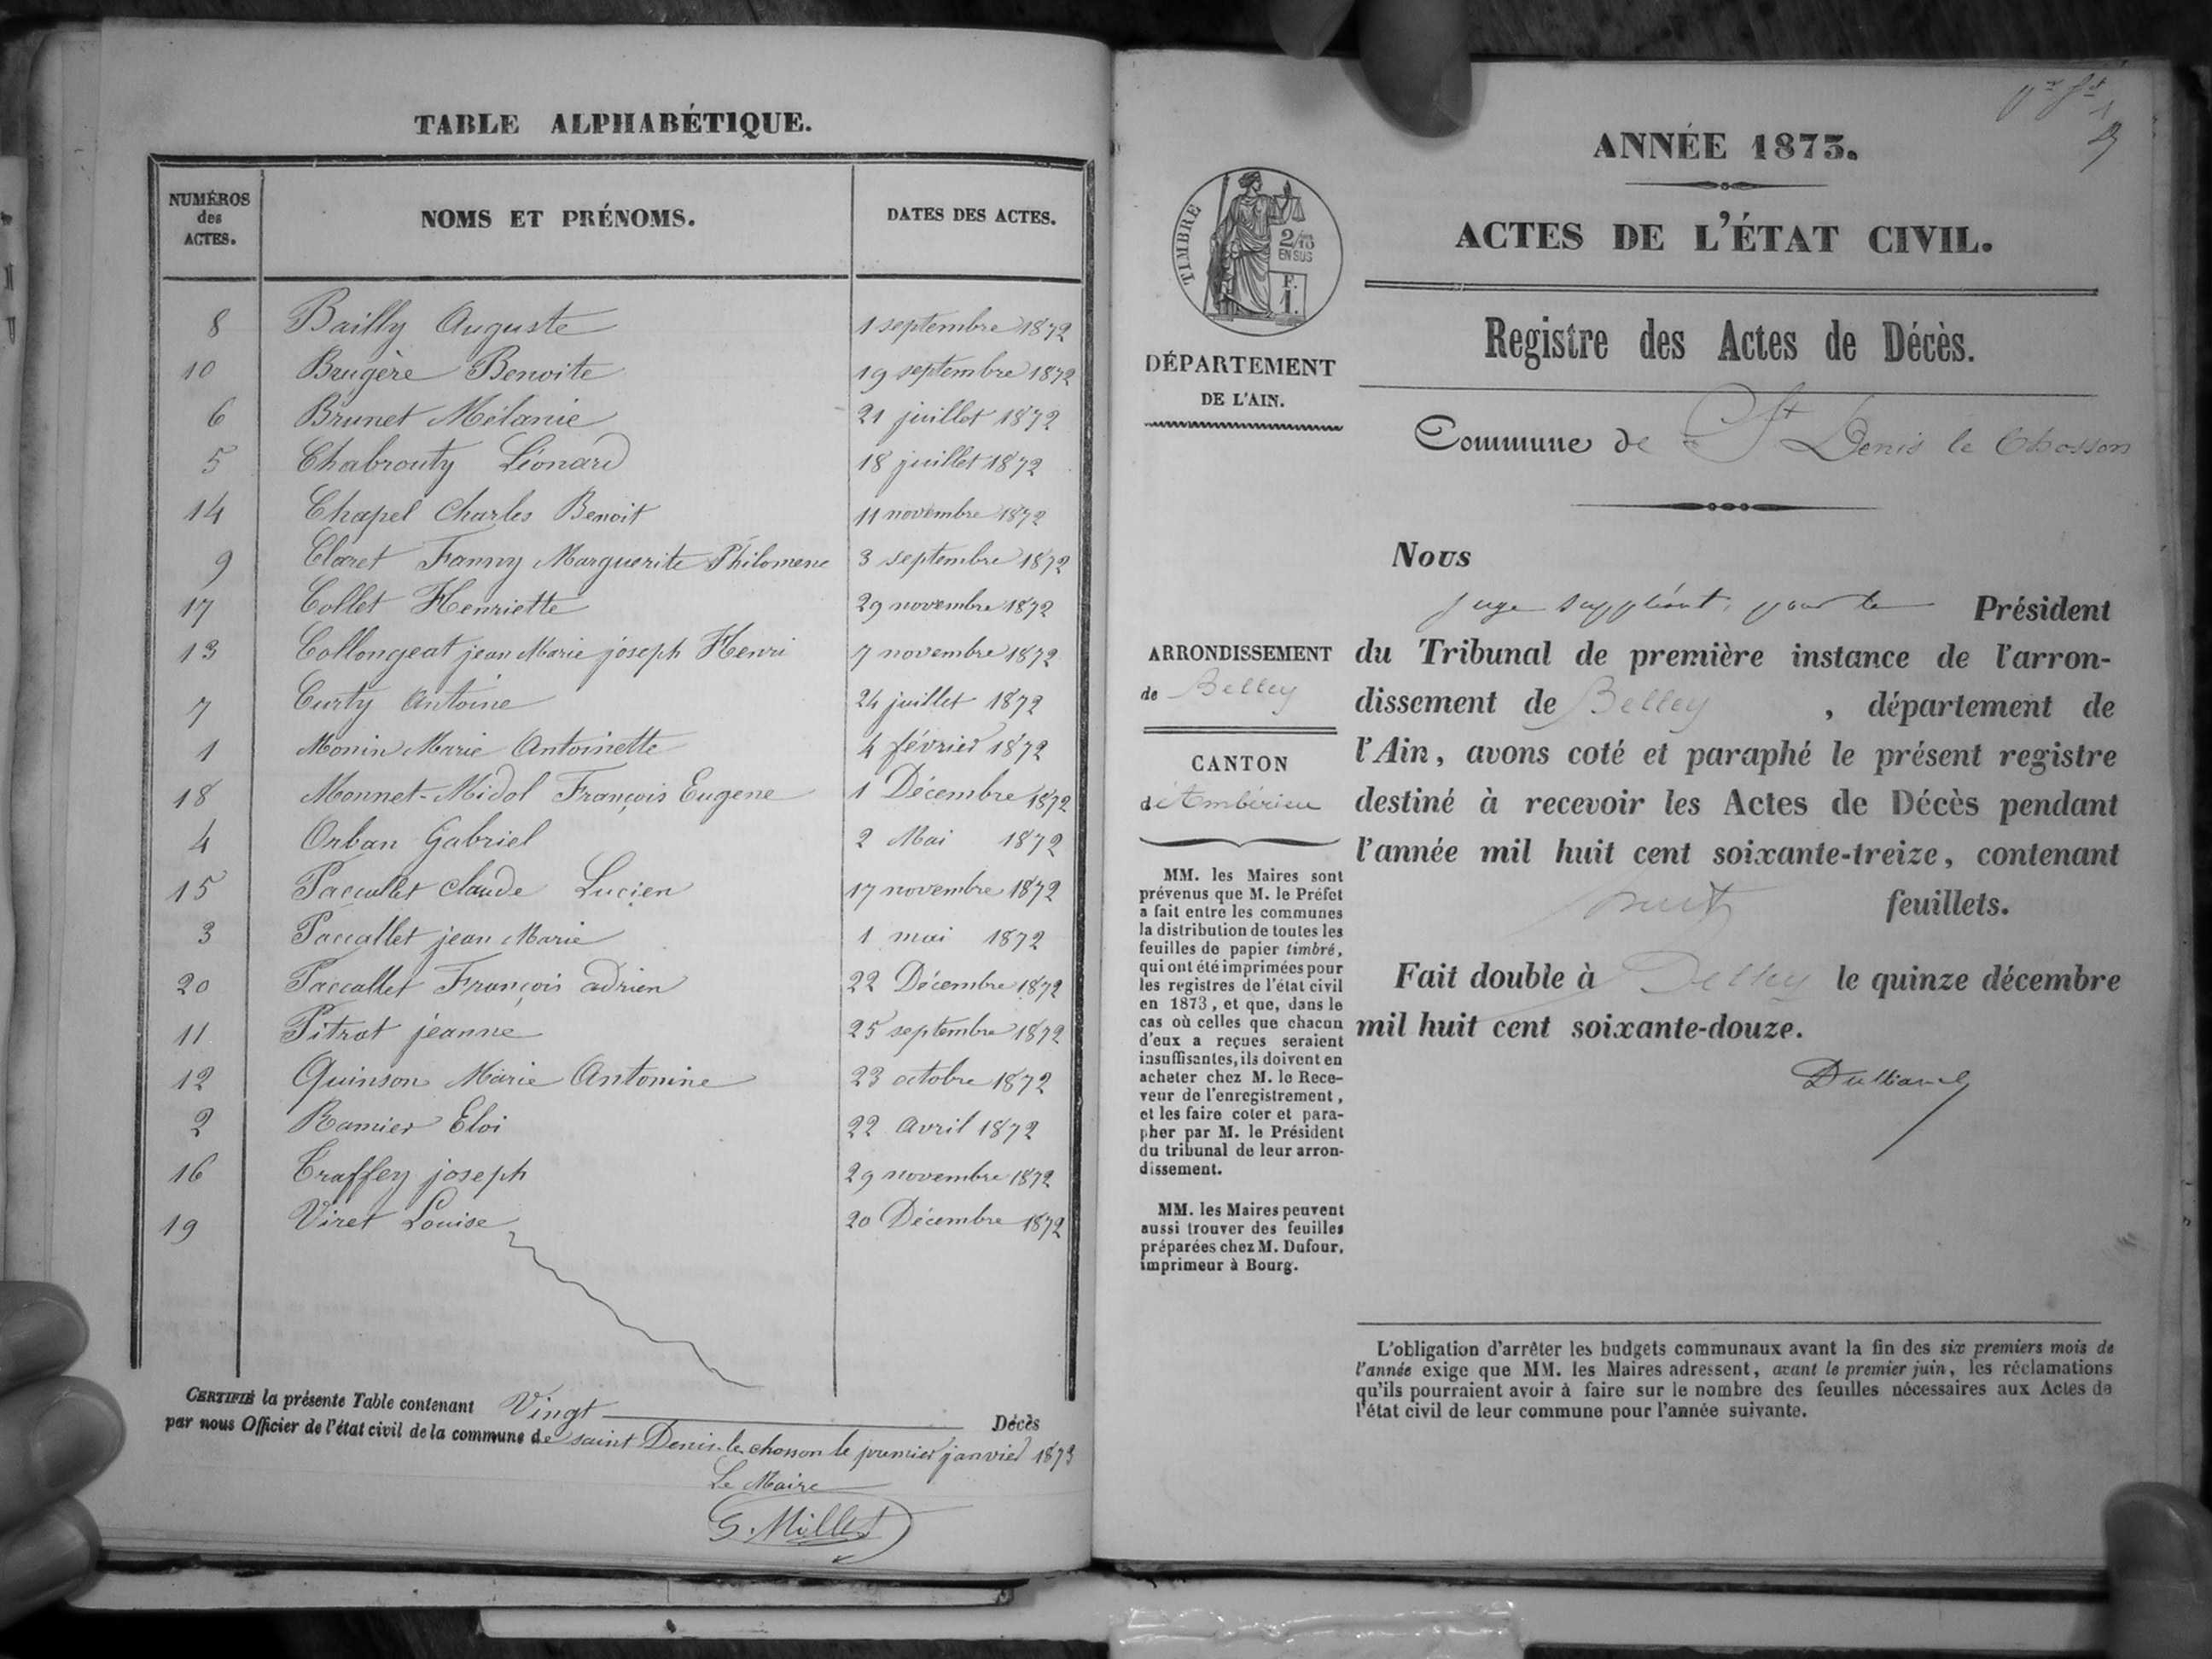 TABLE ALPHABÉTIQUE.
NUMÉROS des ACTES. NOMS ET PRÉNOMS. DATES DES ACTES.
8 Bailly Auguste 1 septembre 1872
10 Brugère Benoite 19 septembre 1872
6 Brunet Mélanie 21 juillet 1872
5 Chabrouty Léonard 18 juillet 1872
14 Chapel Charles Benoit 11 novembre 1872
9 Claret Fanny Marguerite Philomene 3 septembre 1872
17 Collet Henriette 29 novembre 1872
13 Collongeat jean Marie joseph Henri 7 novembre 1872
7 Curty Antoine 24 juillet 1872
1 Monin Marie Antoinette 4 février 1872
18 Monnet-Midol François Eugene 1 Décembre 1872
4 Orban Gabriel 2 Mai 1872
15 Paccallet Claude Lucien 17 novembre 1872
3 Paccallet jean Marie 1 mai 1872
20 Paccallet François adrien 22 Décembre 1872
11 Pitrat jeanne 25 septembre 1872
12 Quinson Marie Antonine 23 octobre 1872
2 Ramier Eloi 22 avril 1872
16 Traffey joseph 29 novembre 1872
19 Viret Louise 20 Décembre 1872
CERTIFIÉ la présente Table contenant Vingt Décès
par nous Officier de l'état civil de la commune de saint Denis-le-chosson le premier janvier 1873
Le Maire
G. Millet
ANNÉE 1873.
ACTES DE L'ÉTAT CIVIL.
TIMBRE
2/10
EN SUS
F.
1.
Registre des Actes de Décès.
DÉPARTEMENT
DE L'AIN.
Commune de St Denis le Chosson
Nous
juge suppléant, pour le Président
du Tribunal de première instance de l'arron-
dissement de Belley, département de
l'Ain, avons coté et paraphé le présent registre
destiné à recevoir les Actes de Décès pendant
l'année mil huit cent soixante-treize, contenant
huit feuillets.
Fait double à Belley le quinze décembre
mil huit cent soixante-douze.
ARRONDISSEMENT
de Belley
CANTON
d'Ambérieu
MM. les Maires sont
prévenus que M. le Préfet
a fait entre les communes
la distribution de toutes les
feuilles de papier timbré,
qui ont été imprimées pour
les registres de l'état civil
en 1873, et que, dans le
cas où celles que chacun
d'eux a reçues seraient
insuffisantes, ils doivent en
acheter chez M. le Rece-
veur de l'enregistrement,
et les faire coter et para-
pher par M. le Président
du tribunal de leur arron-
dissement.
MM. les Maires peuvent
aussi trouver des feuilles
préparées chez M. Dufour,
imprimeur à Bourg.
L'obligation d'arrêter les budgets communaux avant la fin des six premiers mois de
l'année exige que MM. les Maires adressent, avant le premier juin, les réclamations
qu'ils pourraient avoir à faire sur le nombre des feuilles nécessaires aux Actes de
l'état civil de leur commune pour l'année suivante.